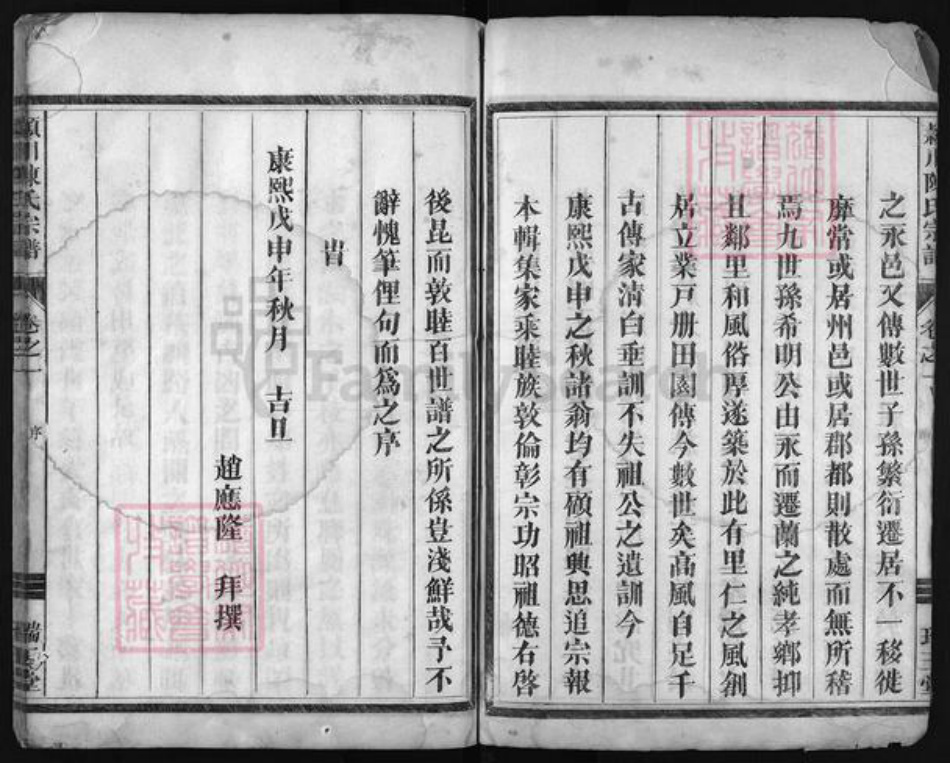 之永邑又傳數世子孫繁衍遷居不一移徙
靡常或居州邑或居郡都則散處而無所稽
焉九世孫希明公由永而遷蘭之純孝鄉抑
且鄰里和風俗厚遂築於此有里仁之風創
居立業戸册田園傳今數世矣高風自足千
古傳家清白垂訓不失祖公之遺訓今
康熙戊申之秋諸翁均有顧祖興思追宗報
本輯集家乘睦族敦倫彰宗功昭祖德右啓
後昆而敦睦百世譜之所係豈淺鮮哉予不
辭愧筆俚句而爲之序
旹
康熙戊申年秋月 吉旦
趙應隆 拜撰
潁川陳氏宗譜 卷之一 序
FamilySearch